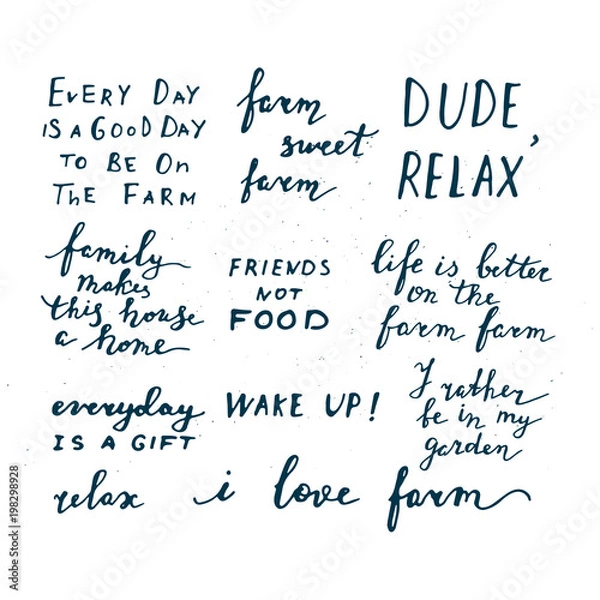 EVERY DAY
IS A GOOD DAY
TO BE ON
THE FARM
farm
sweet
farm
DUDE,
RELAX
family
makes
this house
a home
FRIENDS
NOT
FOOD
life is better
on the
farm farm
everyday
IS A GIFT
WAKE UP!
I rather
be in my
garden
relax
i love farm
Adobe Stock | #198298928